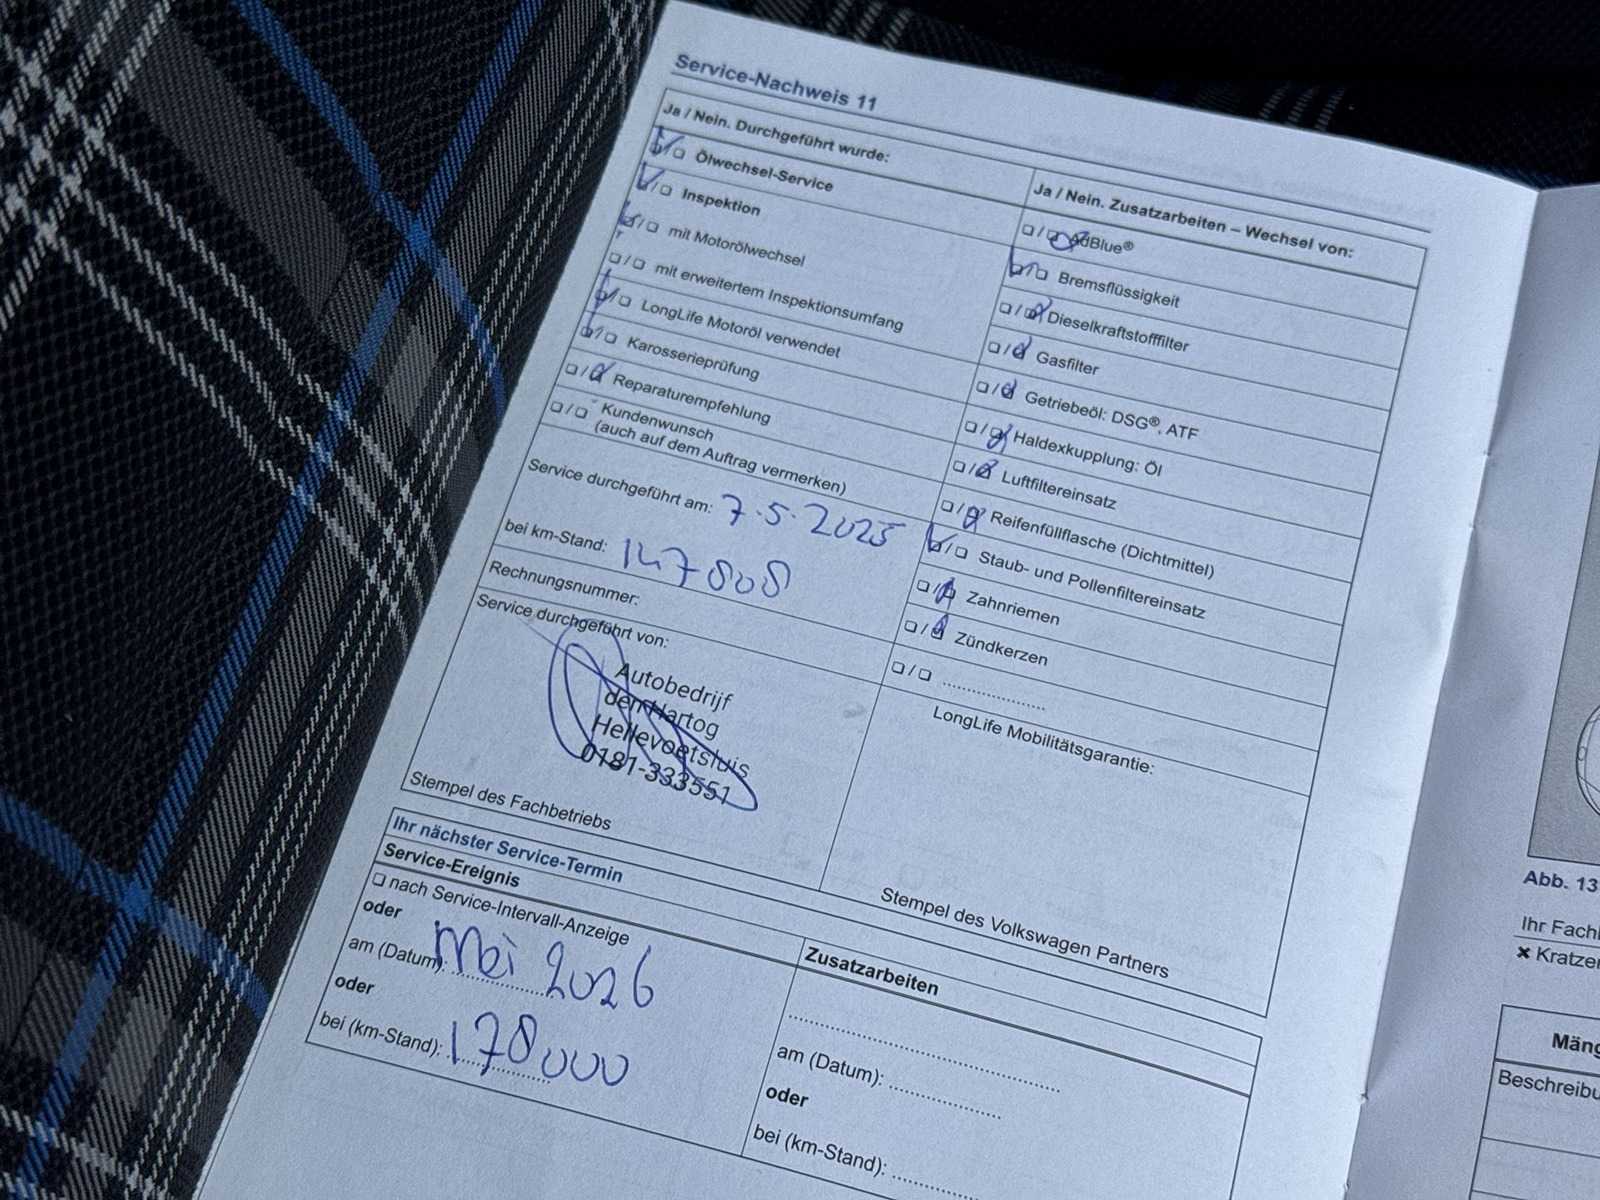 Service-Nachweis 11
Ja / Nein. Durchgeführt wurde:
Ölwechsel-Service
Inspektion
mit Motorölwechsel
mit erweitertem Inspektionsumfang
LongLife Motoröl verwendet
Karosserieprüfung
Reparaturempfehlung
Kundenwunsch
(auch auf dem Auftrag vermerken)
Service durchgeführt am: 7.5.2025
bei km-Stand: 147808
Rechnungsnummer:
Service durchgeführt von:
Autobedrijf
den Hartog
Hellevoetsluis
0181-333551
Stempel des Fachbetriebs
Ja / Nein. Zusatzarbeiten – Wechsel von:
AdBlue®
Bremsflüssigkeit
Dieselkraftstofffilter
Gasfilter
Getriebeöl: DSG®, ATF
Haldexkupplung: Öl
Luftfiltereinsatz
Reifenfüllflasche (Dichtmittel)
Staub- und Pollenfiltereinsatz
Zahnriemen
Zündkerzen
LongLife Mobilitätsgarantie:
Stempel des Volkswagen Partners
Ihr nächster Service-Termin
Service-Ereignis
nach Service-Intervall-Anzeige
oder
am (Datum): mei 2026
oder
bei (km-Stand): 178000
Zusatzarbeiten
am (Datum):
oder
bei (km-Stand):
Abb. 13
Ihr Fach
Kratze
Män
Beschreibu